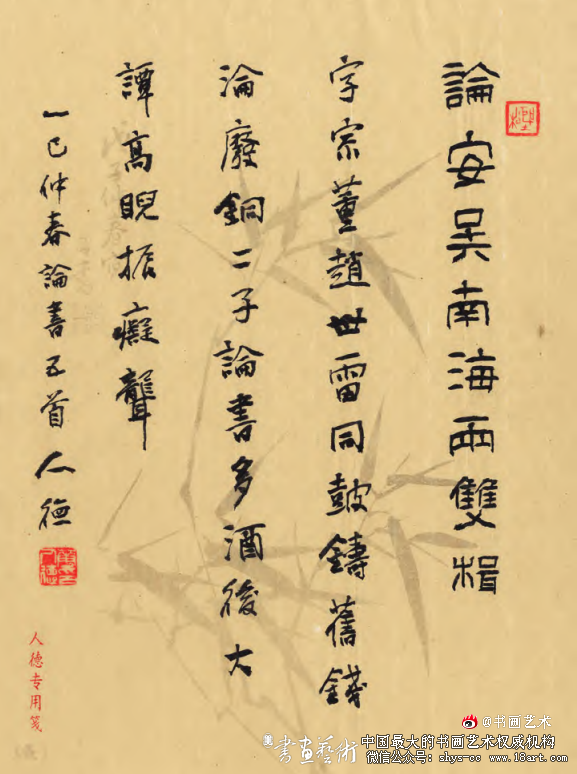 論安吳南海兩雙楫
字宗董趙世雷同鼓鑄舊錢
淪廢銅二子論書多酒後大
譚高睨振癡聾
巳仲春論書五首 人德
人德专用笺
@书画艺术
書画藝術
中国最大的书画艺术权威机构
微信公众号: shys-cc www.18art.com